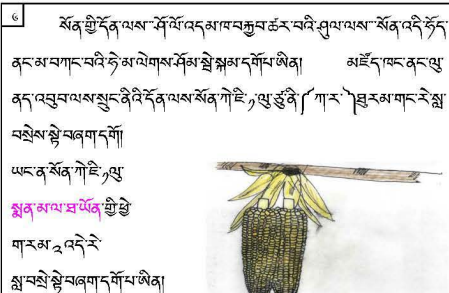 ༦
སོན་གྱི་དོན་ལས་ ཤོ་ལོ་འདམ་ཁ་བརྐྱབ་ཚར་བའི་ཤུལ་ལས་ སོན་འདི་ཧོད་
ནང་མ་བཀང་བའི་ཧེ་མ་ལེགས་ཤོམ་སྦེ་སྐམ་དགོཔ་ཨིན། མཛོད་ཁང་ནང་ལུ་
ནད་འབུབ་ལས་སྲུང་ནིའི་དོན་ལས་སོན་ཀེ་ཇི་ ༡ ལུ་ཙུ་ནི་ ( ཀ་ར་ ) ཐུརམ་གང་རེ་སླ་
བསྲེས་སྟེ་བཞག་དགོ།
ཡང་ན་སོན་ཀེ་ཇི་ ༡ ལུ་
སྨན་མ་ལ་ཐ་ཡོན་གྱི་ཕྱེ་
གརམ་ ༢ འདེ་རེ་
སླ་བསྲེ་སྟེ་བཞག་དགོ་པ་ཨིན།